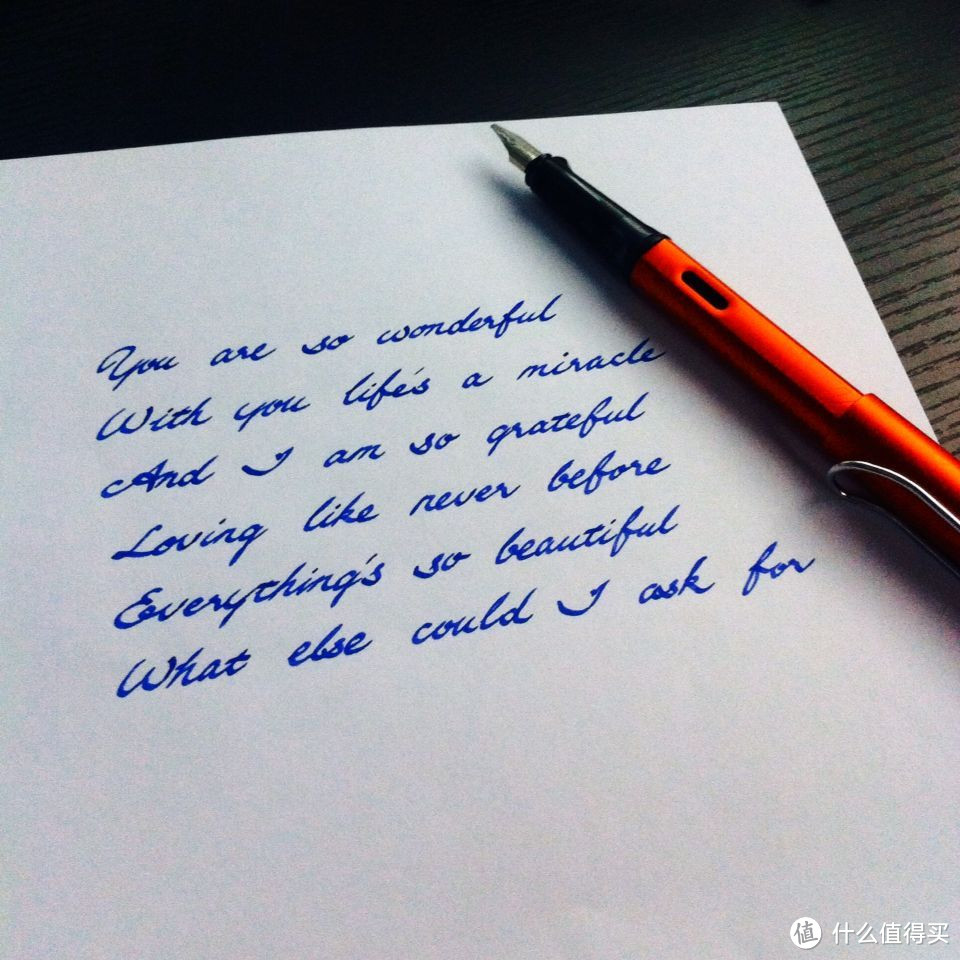 You are so wonderful
With you life's a miracle
And I am so grateful
Loving like never before
Everything's so beautiful
What else could I ask for
值 什么值得买